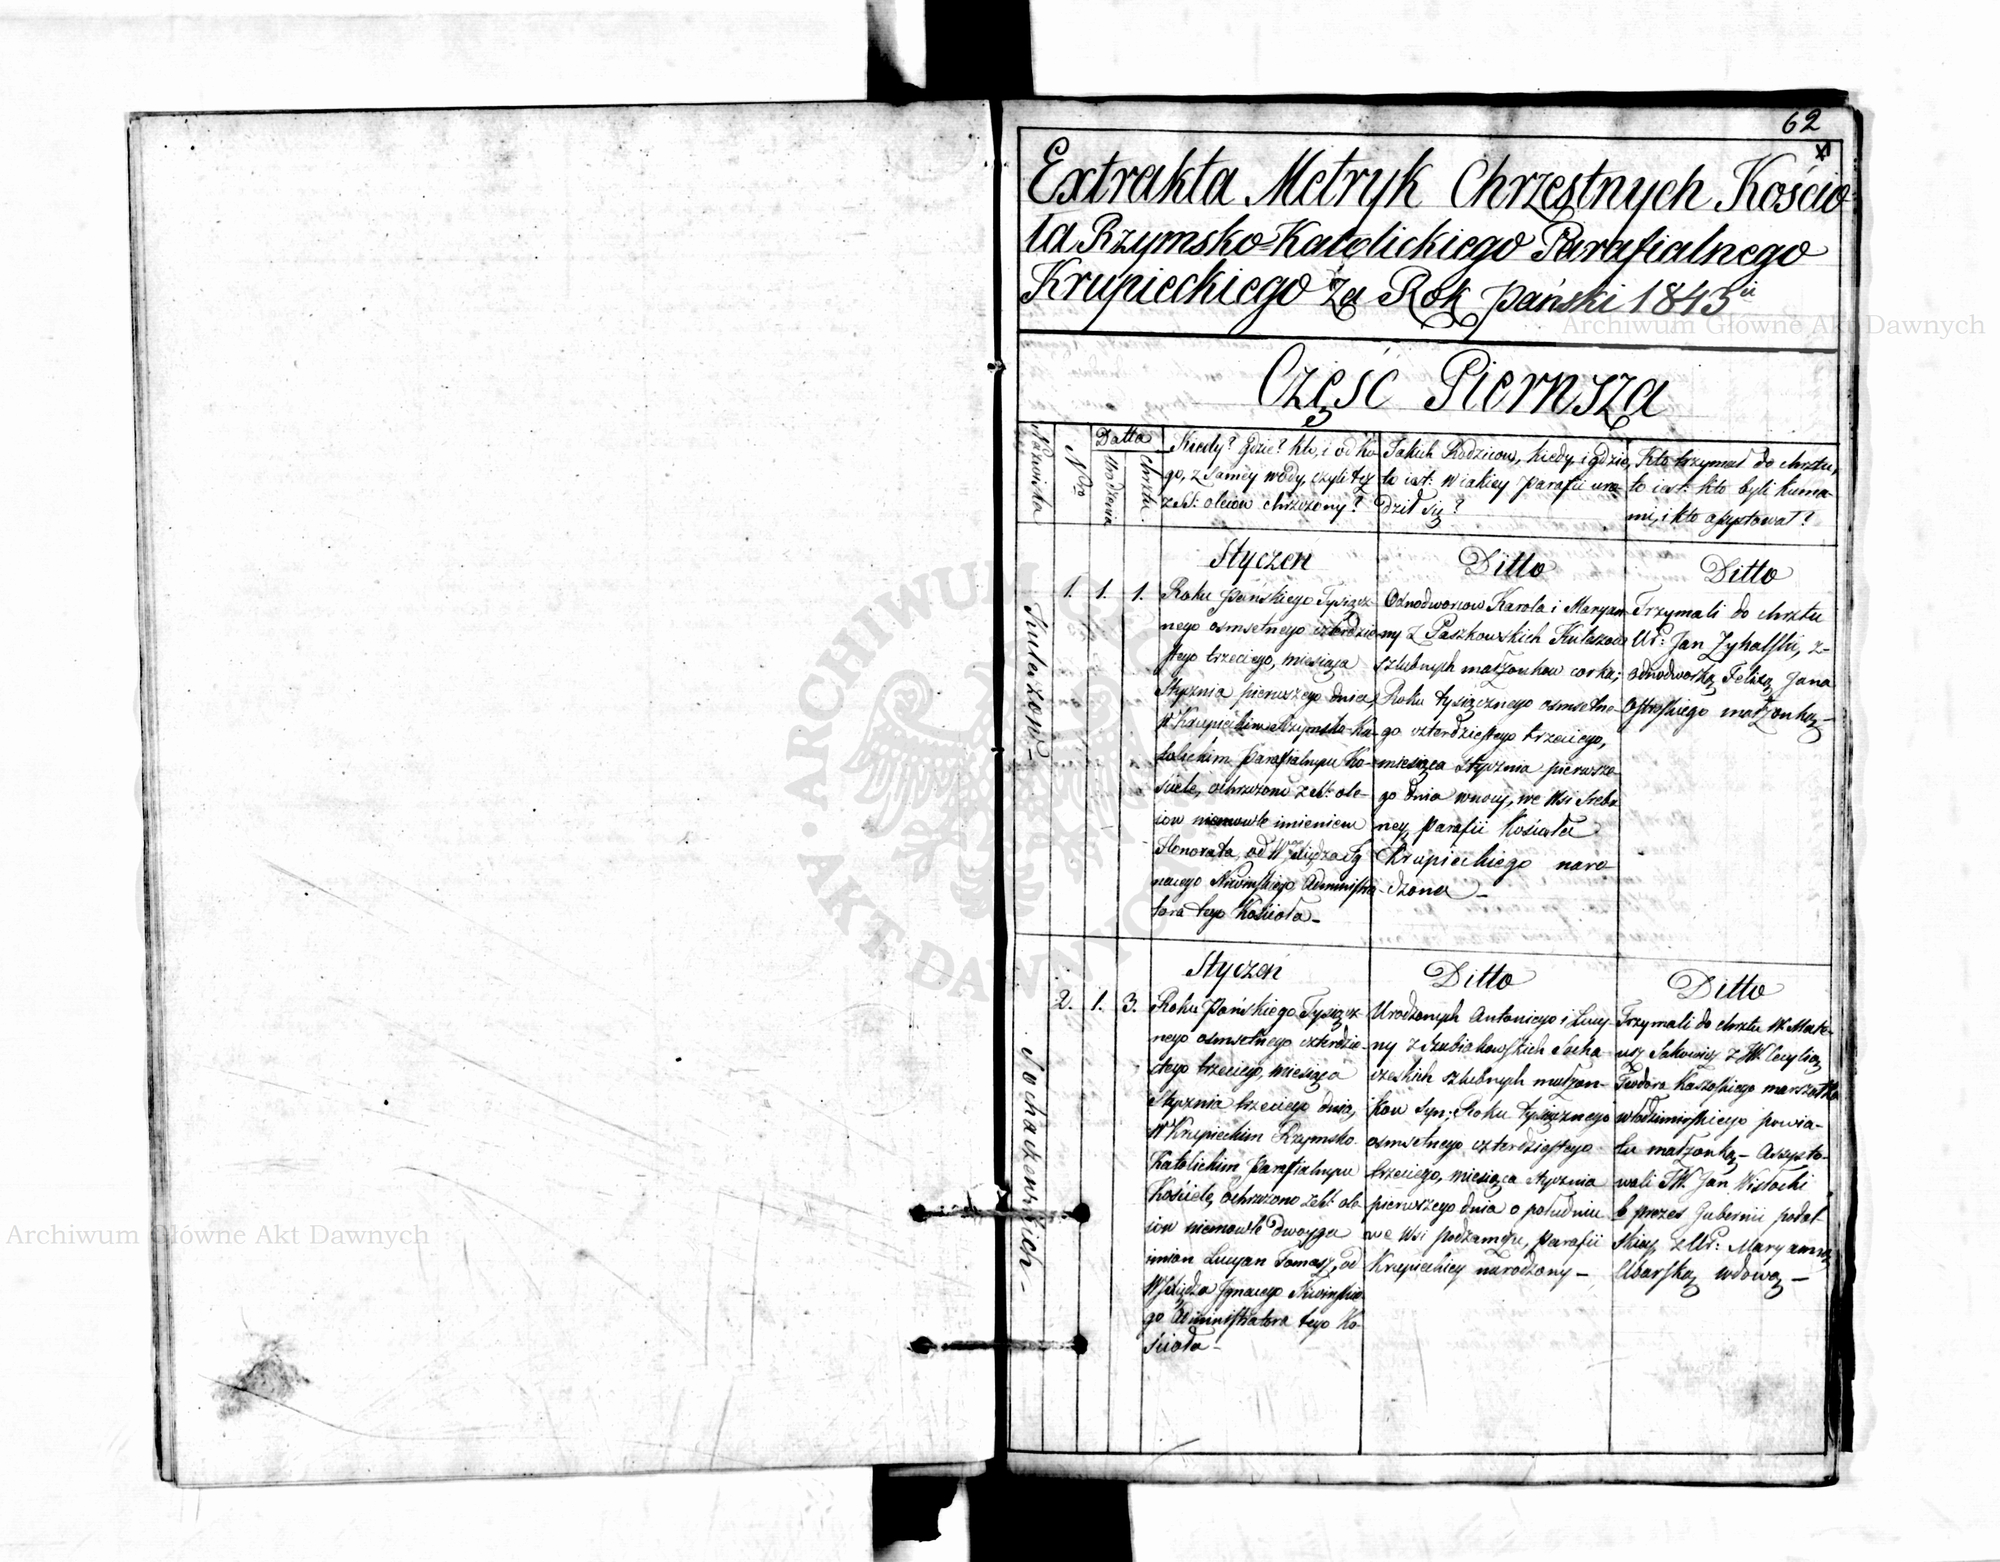 62
Extrakta Metryk Chrzestnych Kościo-
ła Rzymsko=Katolickiego Parafialnego
Krupieckiego za Rok Pański 1843
Archiwum Główne Akt Dawnych
Część Pierwsza
Nazwiska
Nro
Datta
Urodzenia
Chrztu.
Kiedy? gdzie? kto, i od ko-
go, z samey wody, czyli też
z SS: oleiow chrzczony?
Jakich Rodzicow, kiedy, i gdzie,
to iest: w iakiey parafii uro-
dził się?
Kto trzymał do chrztu,
to iest: kto byli kuma-
mi, i kto assystował?
Kuleszow
1. 1. 1.
Styczeń
Roku Pańskiego Tysiącz-
nego osmsetnego czterdzie-
stego trzeciego, miesiąca
Stycznia pierwszego dnia,
w Krupieckim Rzymsko-Ka-
tolickim Parafialnym Ko-
sciele, ochrzczono z SS: ole-
iow niemowle imieniem
Honorata, od W Xiędza Ig-
nacego Administra-
tora tego Kościoła–
Ditto
Odnodworcow Karola i Maryan-
ny z Paszkowskich Kuleszow
szlubnych małżonkow corka;
Roku tysiącznego osmsetne-
go czterdziestego trzeciego,
miesiąca stycznia pierwsze-
go dnia w nocy, we Wsi Srebr-
ney, parafii Kościoła
Krupieckiego naro-
dzona–
Ditto
Trzymali do chrztu
Ur: Jan z-
odnodworką Felixą Jana
małżonką–
Sochaczewskich–
2. 1. 3.
Styczeń
Roku Pańskiego Tysiącz-
nego osmsetnego czterdzie-
stego trzeciego, miesiąca
Stycznia trzeciego dnia,
w Krupieckim Rzymsko-
Katolickim, Parafialnym
Kościele, ochrzczono z SS: ole-
iow niemowle dwoyga
imion Lucyan Tomasz, od
W Xiędza Ignacego
go Administratora tego Ko-
ścioła–
Ditto
Urodzonych Antoniego i Lucy-
ny z
szlubnych małżon-
kow syn; Roku tysiącznego
osmsetnego czterdziestego
trzeciego, miesiąca stycznia
pierwszego dnia o południu
we Wsi Podzamcze, parafii
Krupieckiey narodzony–
Ditto
Trzymali do chrztu W. Mate-
usz z JW. Cecylią
Teodora marszałka
włodzimirskiego powia-
tu małżonką– Assysto-
wali JW. Jan
b. prezes Gubernii podol-
skiey z Ur: Maryanną
wdową–
Archiwum Główne Akt Dawnych
ARCHIWUM GŁÓWNE • AKT DAWNYCH •